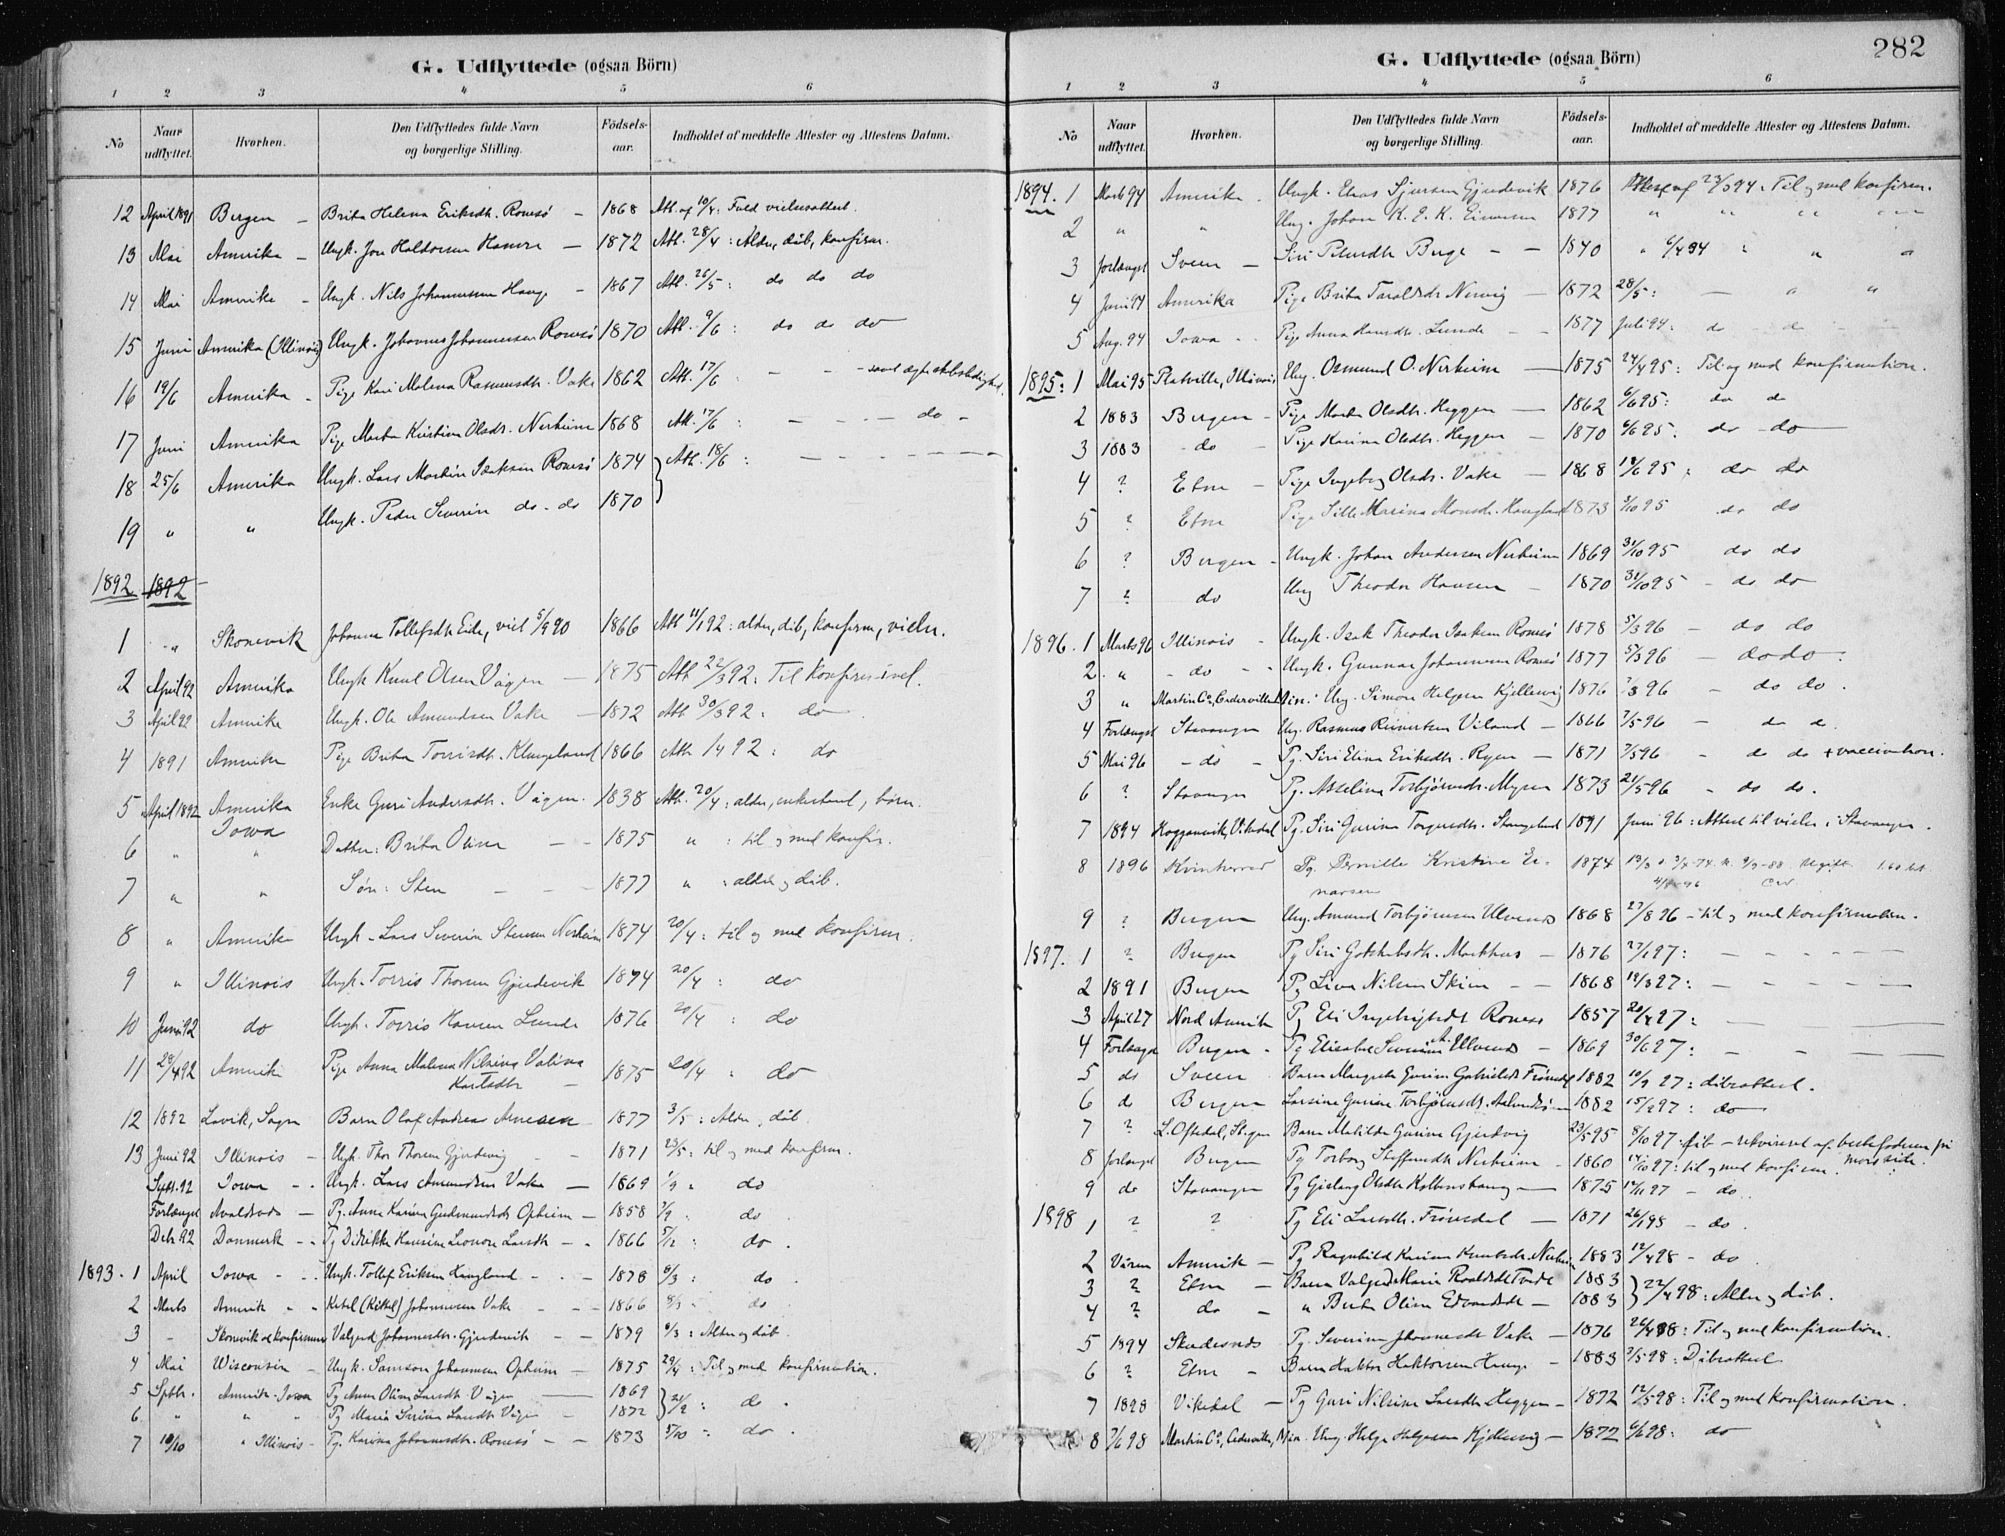 G. Udflyttede (ogsaa Börn)
1 2 3 4 5 6
No Naar udflyttet. Hvorhen. Den Udflyttedes fulde Navn og borgerlige Stilling. Födsels-aar. Indholdet af meddelte Attester og Attestens Datum.
12 April 1891 Bergen – Brita Helena Eriksdtr. Romsö – 1868 Att. af 10/4: Fuld vielsesattest.
13 Mai Amerika – Ungk. Jon Haldorsen Hamre – 1872 Att. 28/4: Alder, dåb, konfirm.
14 Mai Amerika – Ungk. Nils Johannessen Hauge – 1867 Att. 26/5: do do do
15 Juni Amerika (Illinois) Ungk. Johannes Johannessen Romsö 1870 Att. 9/6: do do do
16 19/6 Amerika – Pige Kari Malena Rasmusdtr. Vake 1862 Att. 17/6: – – – samt ægteskabsledighed.
17 Juni Amerika Pige Marta Kristina Olsdr. Nerheim 1868 Att. 17/6: – – – do –
18 25/6 Amerika Ungk. Lars Martin Isaksen Romsö 1874 } Att. 18/6: – – – – – –
19 " " Ungk. Peder Severin do – do 1870
1892 1892
1 " Skonevik Johanna Tollefsdtr Eide, viet 5/9 90 1866 Att 11/1 92: alder, dåb, konfirm, vielse.
2 April 92 Amerika Ungk Knut Olsen Vågen – 1875 Att 22/3 92: Til konfirm. incl.
3 April 92 Amerika Ungk. Ole Amundsen Vake – 1872 Att 30/3 92: do
4 1891 Amerika Pige Brita Torrisdtr. Klungeland 1866 Att. 1/4 92: do
5 April 1892 Amerika Iowa Enke Guri Andersdtr. Vågen. 1838 Att. 20/4: alder, enkestand, börn.
6 " " Datter: Brita Olina – – 1875 " : til og med konfir.
7 " " Sön: Sten – – – 1877 " : alder og dåb.
8 " Amerika Ungk. Lars Severin Stensen Nerheim 1874 20/4: til og med konfirm.
9 " Illinois Ungk. Torris Thorsen Gjerdevik 1874 20/4: do
10 Juni 92 do Ungk. Torris Hansen Lunde 1876 20/4: do
11 29/4 92 Amerika Pige Anna Malena Nilsina Valina – 1875 20/4: do
12 1892 Lavik, Sogn Barn Olaf Andreas Arnesen 1877 3/5: Alder, dåb.
13 Juni 92 Illinois – Ungk. Thor Thorsen Gjerdevig – – 1871 23/5: til og med konfirm.
Sept. 92 Iowa – . Ungk. Lars Amundsen Vake – 1869 1/9 " do
Forlængst Avaldsnes – Pg. Anna Karina Gudmundsdtr Opheim – 1858 do.
Debr. 92 Danmark – . Pg Didrikke Hansine Leonore Larsdtr – . 1866 5/12: do.
1893. 1 April Iowa – . . Ungk. Tollef Eriksen Haugland – . – . 1878 6/3: do.
2 Marts Amerik " " Ketel (Kittel) Johannessen Vake – – – 1866 8/3: do
3 – Skonevik Valgerd Johannesdtr. Gjerdevik – – 1879 6/3: Alder og dåb.
4 Mai Wisconsin – Ungk. Samson Johannesen Opheim – – 1875 29/4: Til og med konfirmation.
5 Sptbr. Amerik. Iowa Pg Anna Olina Larsdtr Vågen – 1869
6 " " " Pg Maria Serina Larsdtr Vågen – 1872 } : do.
7 10/10 " Illinois – Pg. Karina Johannesdtr. Romsö – – 1873 5/10: do.
282
G. Udflyttede (ogsaa Börn)
1 2 3 4 5 6
No Naar udflyttet. Hvorhen. Den Udflyttedes fulde Navn og borgerlige Stilling. Födsels-aar. Indholdet af meddelte Attester og Attestens Datum.
1894. 1 Marts 94 Amerika. Ungk. Elias Sjursen Gjerdevik 1876 Attest af 23/3 94: Til og med konfirm.
2 " " Ung. Johan K. E. K. Einarsen 1877 " " " "
3 forlængst Sveen – Siri Petersdtr Berge – – 1840 " 6/4 94 : " "
4 Juni 94 Amerika Pige Brita Taraldsdr Nervig – 1872 28/5: – " "
5 Aug. 94 Iowa . . Pige Anna Hansdtr. Lunde – – 1877 Juli 94: do do
1895: 1 Mai 95 Platville, Illinois Ung. Osmund O. Nerheim – 1875 24/4 95: Til og med konfirmation.
2 1883 Bergen – Pige Marta Olsdtr. Heggen – 1862 6/6 95: do do
3 1883 do – Pige Karina Olsdtr. Heggen – 1870 6/6 95: do – do
4 ? Etne – Pige Ingeborg Olsdr. Vake – 1868 14/6 95: do do
5 ? Etne Pige Sille Marina Monsdr. Haugland 1873 3/10 95 do do
6 ? Bergen – Ungk. Johan Andersen Nerheim 1869 31/10 95 do do
7 ? do Ung Theodor Hansen – 1870 31/10 95 – do do
1896. 1 Marts 96 Illinois – Ungk. Isak Theodor Isaksen Romsö 1878 5/3 96 – do do
2. " – do – – Ungk. Gunnar Johannessen Romsö 1877 5/3 96 – do do.
3 " Martin Co, Cedarville Min: Ung. Simon Helgesen Kjellesvig 1876 7/3 96 – do do.
4 Forlængst Stavanger Ung. Rasmus Reinertsen Viland – 1866 7/5 96 – do do.
5 Mai 96 – do – Pg. Siri Elina Eriksdtr. Ryen – 1871 7/5 96 – do do + vaccination.
6 ? Stavanger Pg. Asselina Torbjörnsdr. Myren 1873 21/5 96 " do do.
7 1894 Hogganvik, Vikedal Pg. Siri Gurina Torgersdtr. Stangeland 1891 Juni 96: Attest til vielse i Stavanger.
8 1896 Kvinherred Pg. Pernille Kristine Einarsen 1874 Ugift
9 ? Bergen Ung. Amund Torbjörnsen Ulvenes 1868 27/8 96 – til og med konfirmation.
1897. 1 ? Bergen Pg Siri Gotskalksdtr. Markhus – 1876 27/1 97: – – – – –
2 1891 Bergen Pg Lina Nilsen Skim – – 1868 19/3 97: – – – – –
3 April 97 Nord Amerik Pg Eli Ingebrigtsdtr Romsö 1857 20/4 97: – –
4 Forlængst Bergen – Pg Elisabet Severine A. Ulvenes – 1869 30/6 97: – – –
5 do Sveen Barn Margreta Gurine Gabrielsdtr Frönsdal 1882 10/9 27: dåbsattest.
6 do Bergen Larsine Gurine Torbjörnsdtr. 1882 15/9 97: do
7 ? L. Oftedal, Stvgr Barn Matilde Gurine Gjerdvig 23/5 95 8/10 97 dåb – rekvireret af bestefaderen på morsside.
8 forlængst Bergen Pg Torborg Steffensdtr Nerheim – 1860 14/10 97: til og med konfirm.
9 do Stavanger Pg Gislaug Olsdtr Kolbenshaug – 1875 17/11 97 – do.
1898 1 ? ? Pg Eli Larsdtr. Frönsdal – 1871 26/1 98 – do.
2 Våren Amerik – Pg Ragnhild Karina Knutsdr. Nerheim 1883 12/4 98 – do
3 ? Etne – Barn Valgerd Maria Roaldsdtr Tvedt 1883
4 ? do – " Berta Olina Edvardsdtr – 1883 } 22/4 98: Alder og dåb.
5 1894 Skudesnes Pg. Severine Johannesdtr Vake – 1876 26/4 98: Til og med konfirmation.
6 ? Etne – Barn Haktor Haktorsen Hauge – 1883 2/5 98: Dåbsattest
7 1898 Vikedal – Pg Guri Nilsine Larsdtr Heggen – 1872 12/5 98: Til og med konfirmation.
8 7/6 98 Martin Co, Cedarville, Min. Ung. Helge Helgesen Kjellesvig – 1872 6/6 98: do